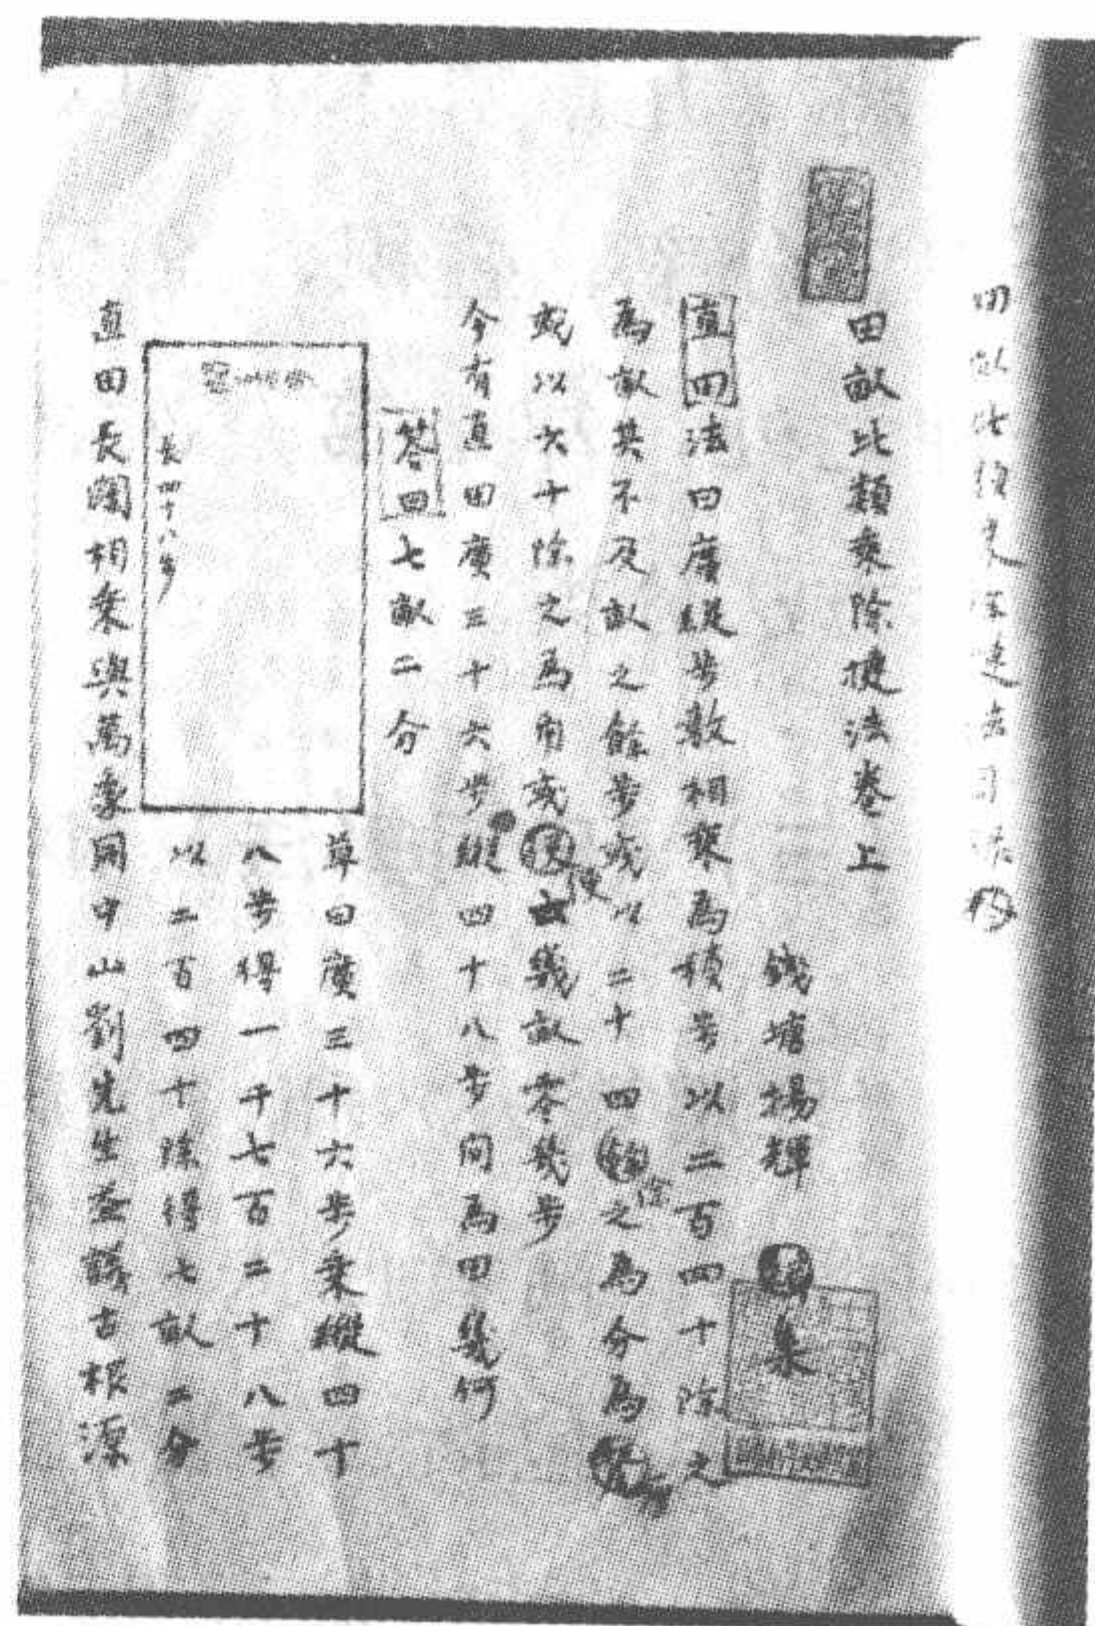 田畝比類乘除捷法卷上
錢塘楊輝 集
直田法曰廣縱步數相乘為積步以二百四十除之
為畝其不及畝之餘步或以二十四除之為分為
或以六十除之為角或便云幾畝零幾步
今有直田廣三十六步縱四十八步問為田幾何
答曰七畝二分
草曰廣三十六步乘縱四十
八步得一千七百二十八步
以二百四十除得七畝二分
長四十八步
直田長闊相乘與萬象同中山劉先生益議古根源